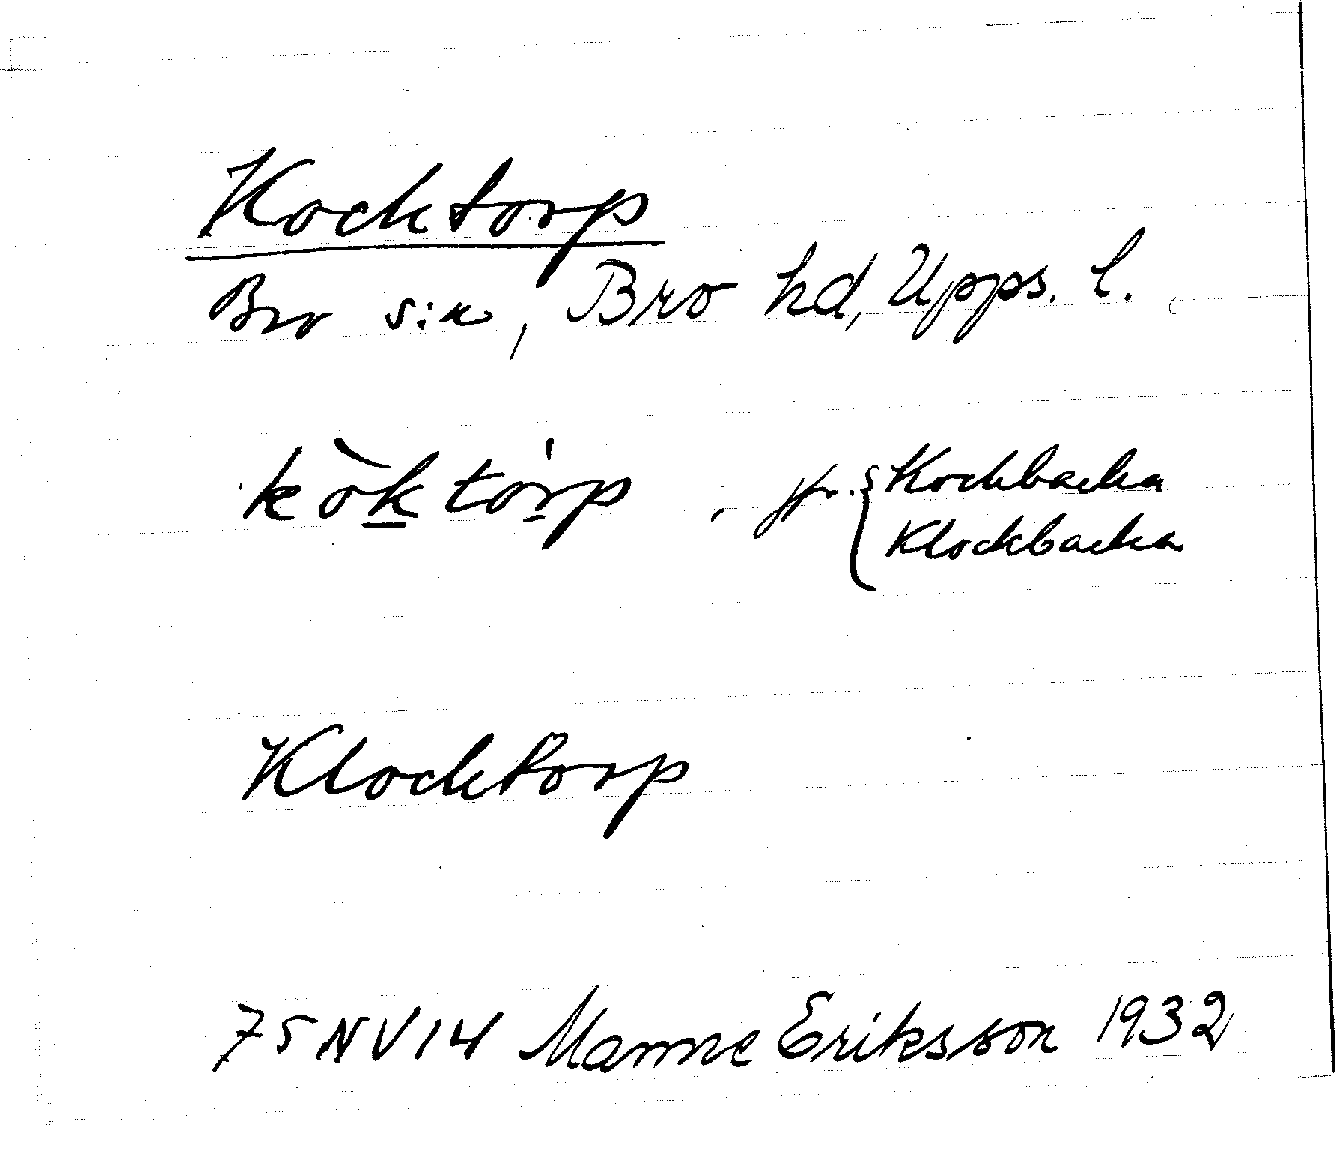 Kocktorp
Bro s:n, Bro hd, Upps. l.
kòktórp, jfr. { Kockbacka
Klockbacka
Klocktorp
75NV14 Manne Eriksson 1932